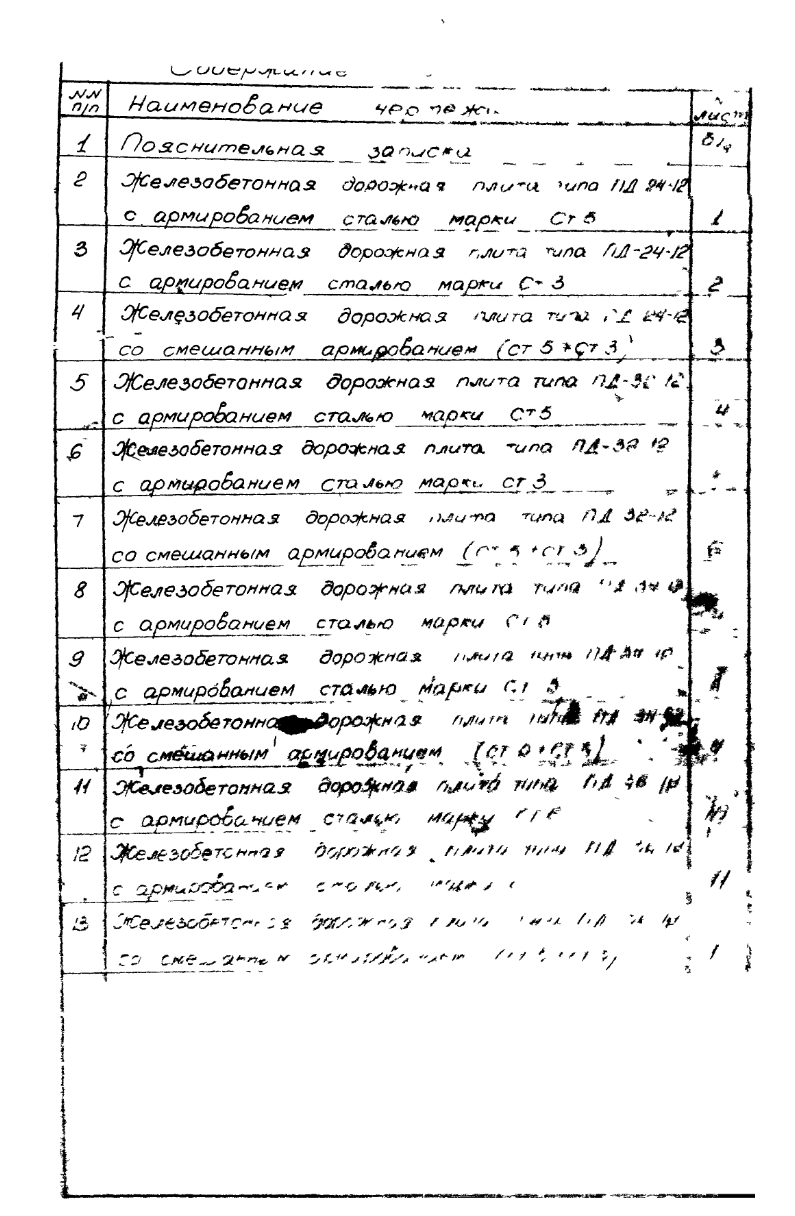 Содержание
NN
п/п
Наименование чертежи
лист
1 Пояснительная записка
2 Железобетонная дорожная плита типа ПД 24-12
с армированием сталью марки Ст 5 1
3 Железобетонная дорожная плита типа ПД-24-12
с армированием сталью марки Ст 3 2
4 Железобетонная дорожная плита типа ПД 24-12
со смешанным армированием (Ст 5 + Ст 3) 3
5 Железобетонная дорожная плита типа ПД-32 12
с армированием сталью марки Ст 5 4
6 Железобетонная дорожная плита типа ПД-32 12
с армированием сталью марки Ст 3
7 Железобетонная дорожная плита типа ПД 32-12
со смешанным армированием (Ст 5 + Ст 3) 6
8 Железобетонная дорожная плита типа ПД
с армированием сталью марки Ст 5
9 Железобетонная дорожная плита типа ПД
с армированием сталью марки Ст 3
10 Железобетонная дорожная плита типа ПД
со смешанным армированием
11 Железобетонная дорожная плита типа ПД
с армированием сталью марки
12 Железобетонная дорожная плита типа ПД
с армированием сталью марки 11
13 Железобетонная дорожная плита типа ПД
со смешанным армированием